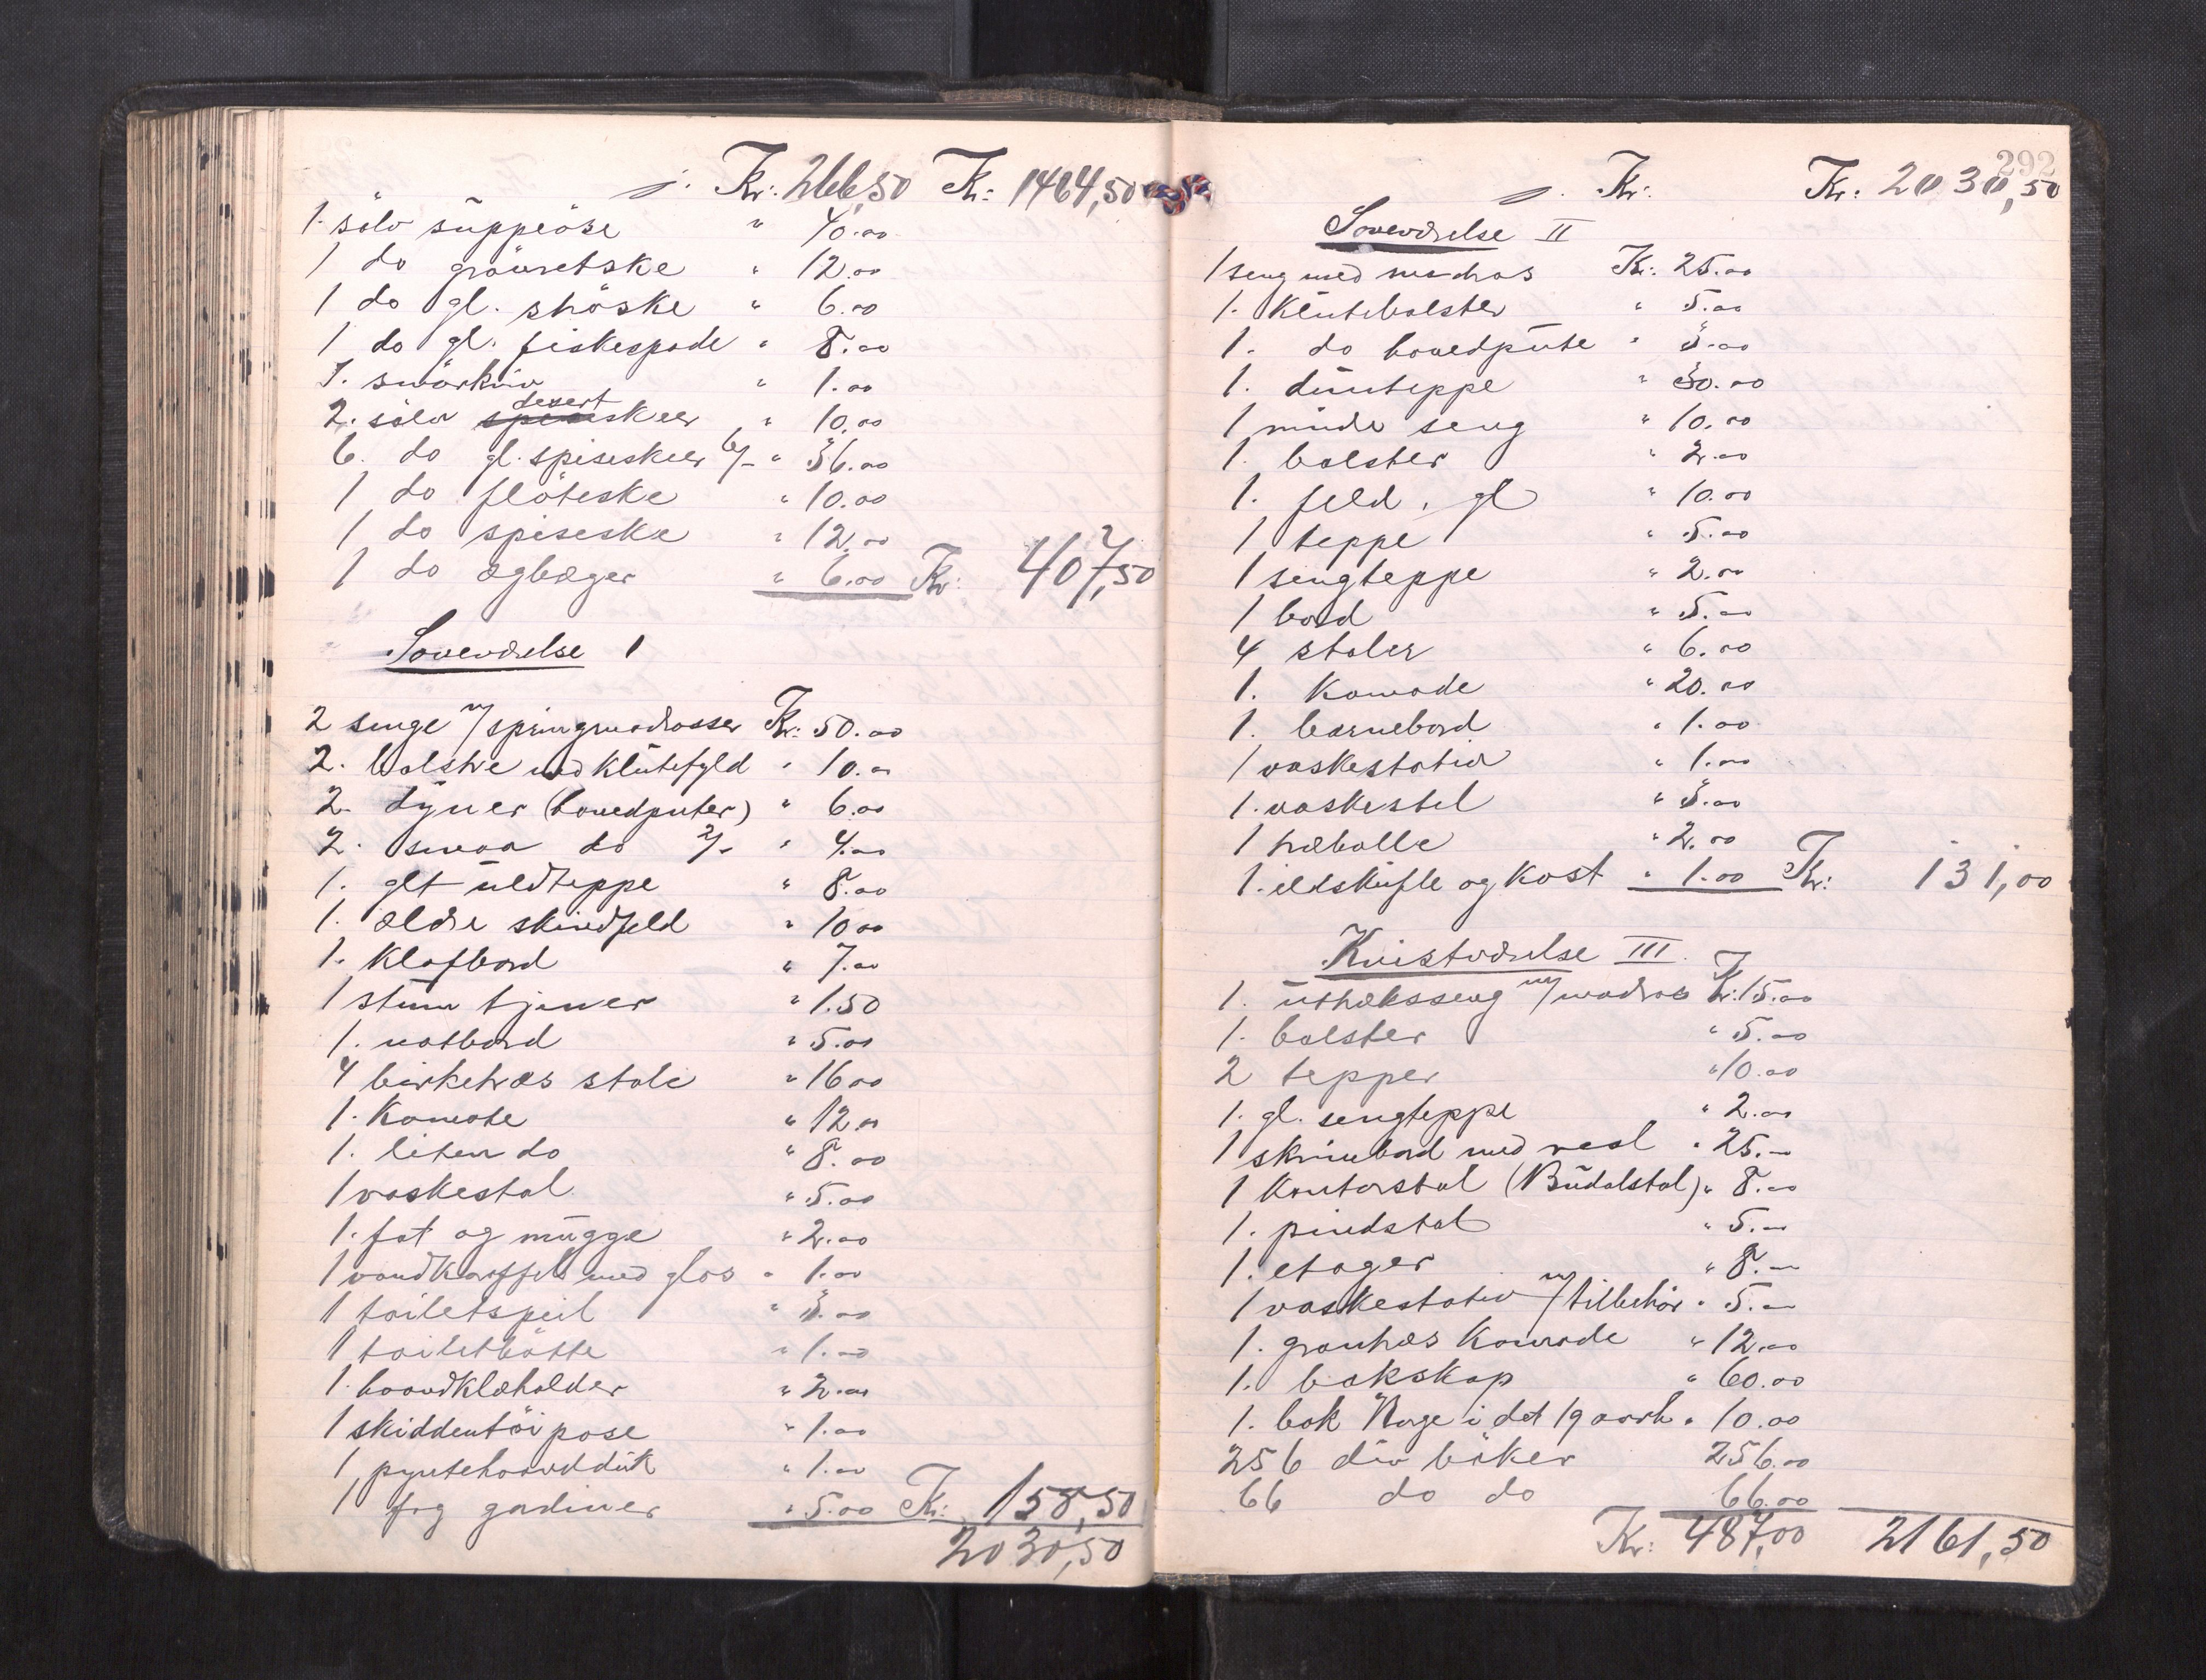 j. Kr: 266,50 Kr: 1464,50
1. sölv süppeöse " 40.00
1 do gröüretske " 12.00
1 do gl. ströske " 6.00
1 do gl. fiskespade " 8.00
1. smörkniv " 1.00
desert
2. sölv spiseskeer " 10.00
6. do gl. spiseskeer 6/- " 36.00
1 do flöteske " 10.00
1 do spiseske " 12.00
1 do ægbæger " 6.00 Kr: 407,50
Soveværelse 1
2 senge m/ springmadrasser Kr: 50.00
2. bolstre med klütefyld " 10.00
2. dyner (hovedputer) " 6.00
2. smaa do 2/- " 4.00
1. glt üldteppe " 8.00
1. ældre skindfeld " 10 00
1. Klafbord " 7.00
1 stüm tjener " 1.50
1. natbord " 5.00
4 birketræs stole " 16 00
1. Komode " 12.00
1. liten do " 8.00
1 vaskestol " 5.00
1. fat og mügge " 2.00
1 vandkaraffel med glas " 1.00
1 toiletspeil " 3.00
1 toiletbötte " 1.00
1. haandklæholder " 2.00
1 skiddentöipose " 1.00
1 pyntehaanddük " 1.00
1 fag gardiner " 5.00 Kr: 158,50
2030,50
292
j. Kr: Kr: 2030,50
Soveværelse II
1 seng med madras Kr: 25.00
1. Klütebolster " 5.00
1. do hovedpüte " 3.00
1. dünteppe " 30.00
1 mindre seng " 10.00
1. bolster " 2.00
1. feld, gl " 10.00
1 teppe " 5.00
1 sengteppe " 2.00
1 bord " 5.00
4 stoler " 6.00
1. Komode " 20.00
1. barnebord " 1.00
1 vaskestativ " 1.00
1. vaskestel " 3.00
1 træballe " 2.00
1. ildsküfle og kost " 1.00 Kr: 131,00
Kvistværelse III.
1. üttræksseng m/ madras Kr: 15.00
1. bolster " 5.00
2 tepper " 10.00
1. gl. sengteppe " 2.00
1 skrivebord med reol " 25.-
1 Kontorstol (Büdalstol) " 8.00
1. pindstol " 5.-
1. etager " 8.-
1 vaskestativ m/ tilbehör " 5.-
1. grantræs Komode " 12.00
1. bokskap " 60.00
1. bok Norge i det 19 aarh. " 10.00
256 div böker 256.00
66 do do 66.00
Kr: 487,00 2161,50